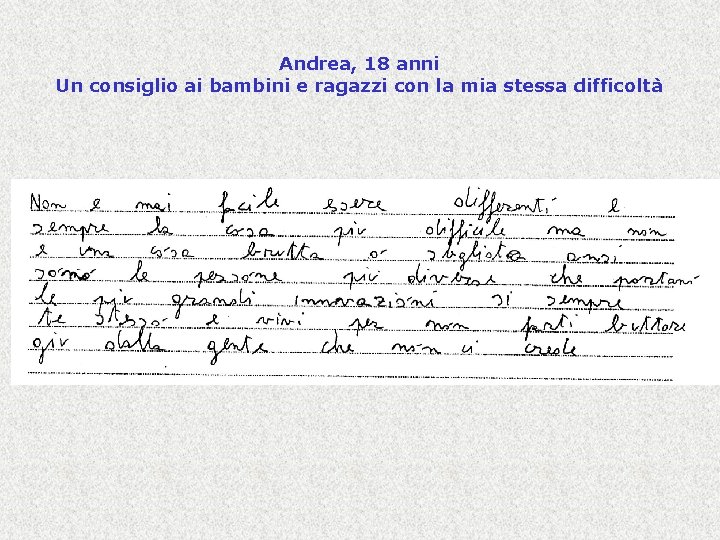 Andrea, 18 anni
Un consiglio ai bambini e ragazzi con la mia stessa difficoltà
Non e mai facile essere differenti e
sempre la cosa piu difficile ma non
e una cosa brutta o sbagliata anzi
sono le persone piu diverse che portano
le piu grandi innovazioni si sempre
te stesso e vivi per non farti buttare
giu dalla gente che non ci crede